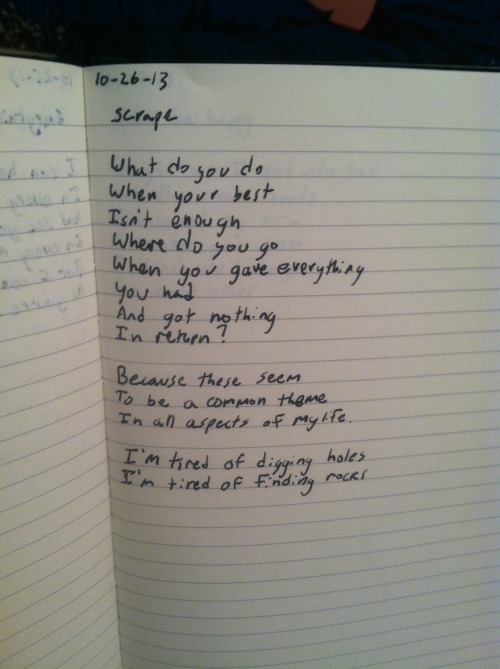 10-26-13
Scrape
What do you do
When your best
Isn't enough
Where do you go
When you gave everything
You had
And got nothing
In return?
Because these seem
To be a common theme
In all aspects of my life.
I'm tired of digging holes
I'm tired of finding rocks